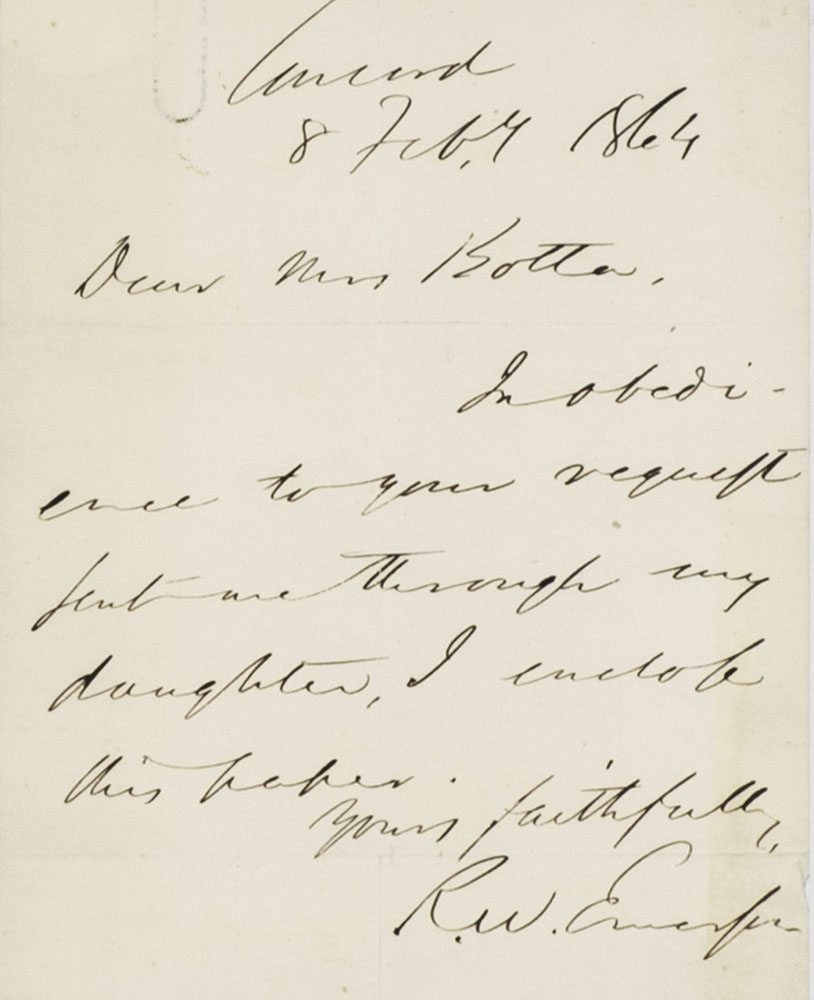 Concord
8 Feb.y 1864
Dear Mrs Botta,
In obedi-
ence to your request
sent me through my
daughter, I enclose
this paper.
Yours faithfully,
R. W. Emerson